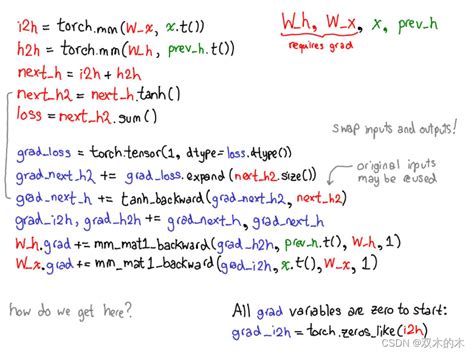 i2h = torch.mm(W_x, x.t())
h2h = torch.mm(W_h, prev_h.t())
next_h = i2h + h2h
next_h2 = next_h.tanh()
loss = next_h2.sum()
W_h, W_x, x, prev_h
requires grad
swap inputs and outputs!
grad_loss = torch.tensor(1, dtype=loss.dtype())
grad_next_h2 += grad_loss.expand(next_h2.size())
grad_next_h += tanh_backward(grad_next_h2, next_h2)
original inputs
may be reused
grad_i2h, grad_h2h += grad_next_h, grad_next_h
W_h.grad += mm_mat1_backward(grad_h2h, prev_h.t(), W_h, 1)
W_x.grad += mm_mat1_backward(grad_i2h, x.t(), W_x, 1)
how do we get here?
All grad variables are zero to start:
grad_i2h = torch.zeros_like(i2h)
CSDN @双木的木